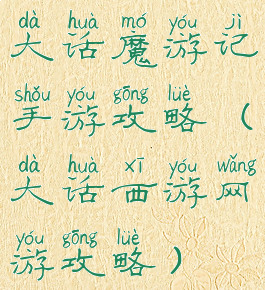 dà huà mó yóu jì
大话魔游记
shǒu yóu gōng lüè
手游攻略（
dà huà xī yóu wǎng
大话西游网
yóu gōng lüè
游攻略）